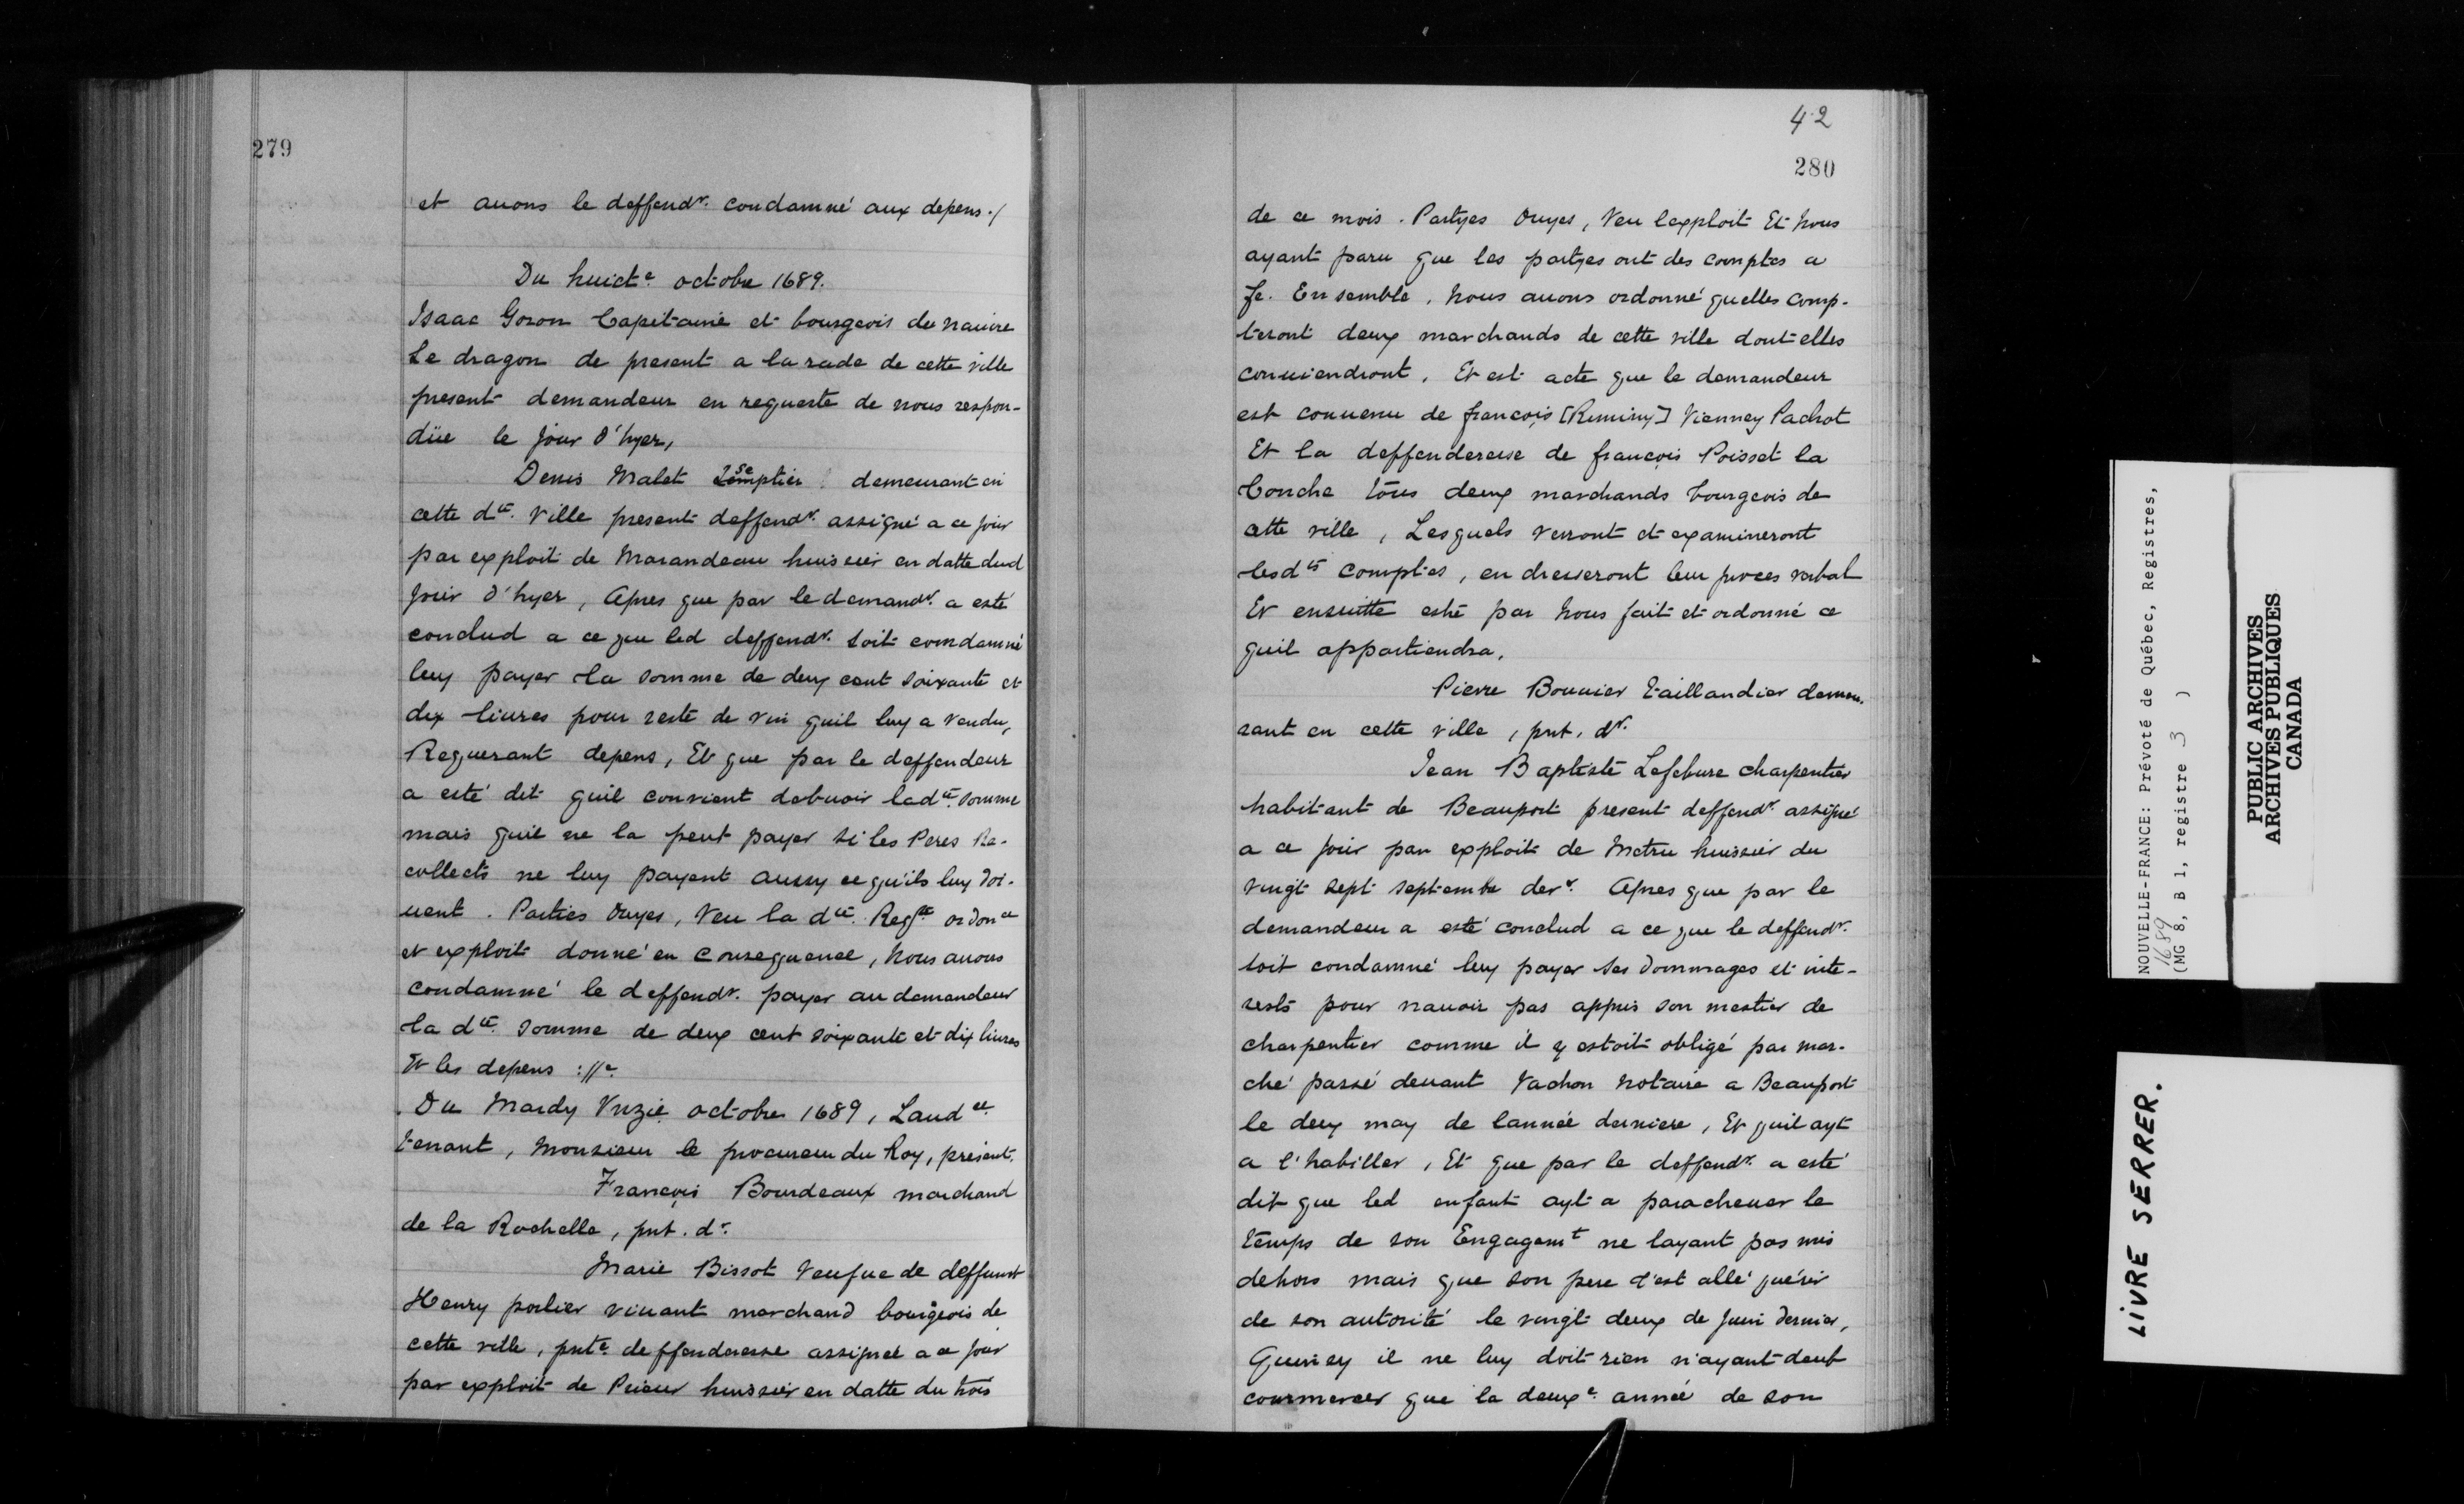 279
et auons le deffendr. condamné aux depens ./
Du huicte octobre 1689.
Isaac Goron Capitaine et bourgeois du nauire
Le dragon de present a la rade de cette ville
present demandeur en requeste de nous respon-
düe le jour d'hyer,
Denis Malet demeurant en
cette dte. Ville present deffendr. assigné a ce jour
par exploit de Marandeau huissier en datte dud
jour d'hyer, Apres que par le demandr. a esté
conclud a ce que led deffendr. soit comdamné
luy payer la somme de deux cent soixante et
dix liures pour reste de vin quil luy a vendu,
Requerant depens, Et que par le deffendeur
a esté dit quil convient debuoir ladte. somme
mais quil ne la peut payer si les Peres Re-
collects ne luy payent aussy ce qu'ils luy doi-
uent. Parties Ouyes, Veu la dte. Reqte ordonce
et exploit donné en consequence, Nous auons
condamné le deffendr. payer au demandeur
la dte. somme de deux cent soixante et dix liures
Et les depens ://e.
Du Mardy Vnzie. octobre 1689, Laudce
tenant, Monsieur le procureur du Roy, présent.
François Bourdeaux marchand
de la Rochelle, pnt. dr.
Marie Bissot Veufue de deffunct
Henry porlier viuant marchand bourgeois de
cette ville, pnte. deffenderesse assignee a ce jour
par exploit de Prieur huissier en datte du trois
42
280
de ce mois. Partyes Ouyes, Veu lexploit Et Nous
ayant paru que les partyes ont des comptes a
fe. Ensemble, Nous auons ordonné quelles comp-
teront deux marchands de cette ville dont elles
conuiendront, Et est acte que le demandeur
est conuenu de françois [Reminy] Vienney Pachot
Et la deffenderesse de françois Poisset la
Conche tous deux marchands bourgeois de
cette ville, Lesquels verront et examineront
lesdts comptes, en dresseront leur proces verbal
Et ensuitte esté par Nous fait et ordonné ce
quil appartiendra.
Pierre Bouuier taillandier demeu-
rant en cette ville, pnt. dr.
Jean Baptiste Lefebure charpentier
habitant de Beauport present deffendr. assigné
a ce jour par exploit de Metru huissier du
vingt sept septembre derr. Apres que par le
demandeur a esté conclud a ce que le deffendr.
soit condamné luy payer ses dommages et inte-
rests pour nauoir pas appris son mestier de
charpentier comme il y estoit obligé par mar-
ché passé deuant Vachon Notaire a Beauport
le deux may de lannée derniere, Et quil ayt
a l'habiller, Et que par le deffendr. a esté
dit que led enfant ayt a paracheuer le
temps de son Engagemt ne layant pas mis
dehors mais que son pere l'est allé quérir
de son autorité le vingt deux de juin dernier,
Quincy il ne luy doit rien n'ayant deub
commencer que la deuxe. année de son
NOUVELLE-FRANCE: Prévoté de Québec, Registres,
1689
(MG 8, B 1, registre 3 )
PUBLIC ARCHIVES
ARCHIVES PUBLIQUES
CANADA
LIVRE SERRER.